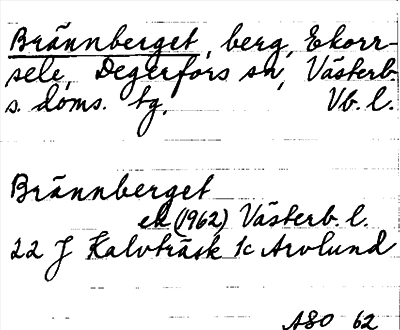 Brännberget, berg, Ekorr-
sele, Degerfors sn, Västerb.
s. doms. tg, Vb. l.
Brännberget
ek (1962) Västerb. l.
22 J Kalvträsk 1c Arvlund
ASO 62